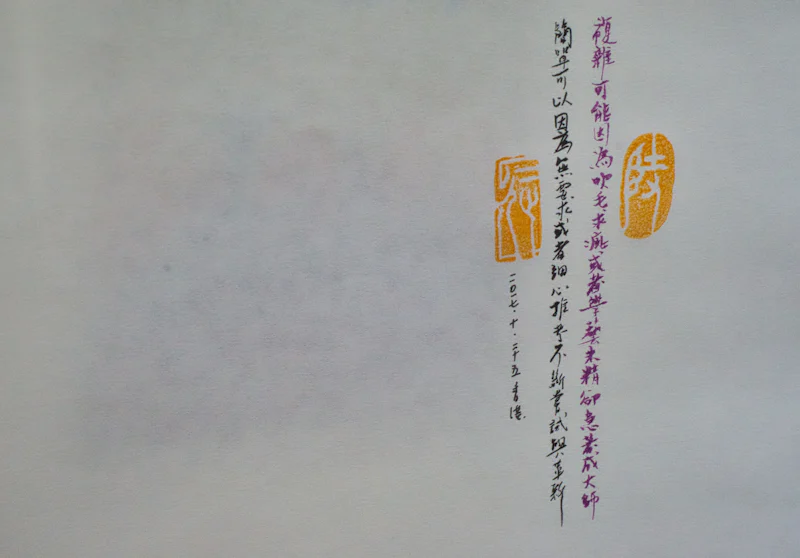 陸
複雜可能因為吹毛求疵或者學藝未精卻急著成大師
簡單可以因為無要求或者細心推不斷嘗試與革新
二〇一七·十·二十五香港